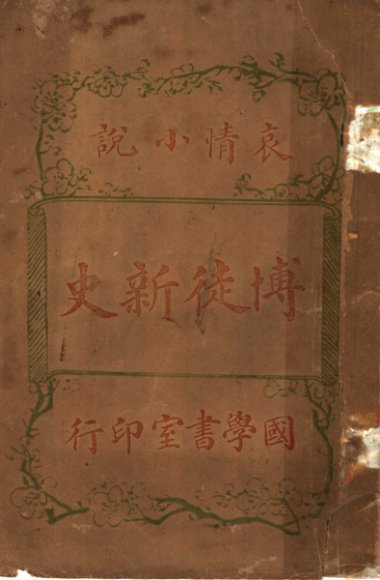 哀情小說
博徒新史
國學書室印行